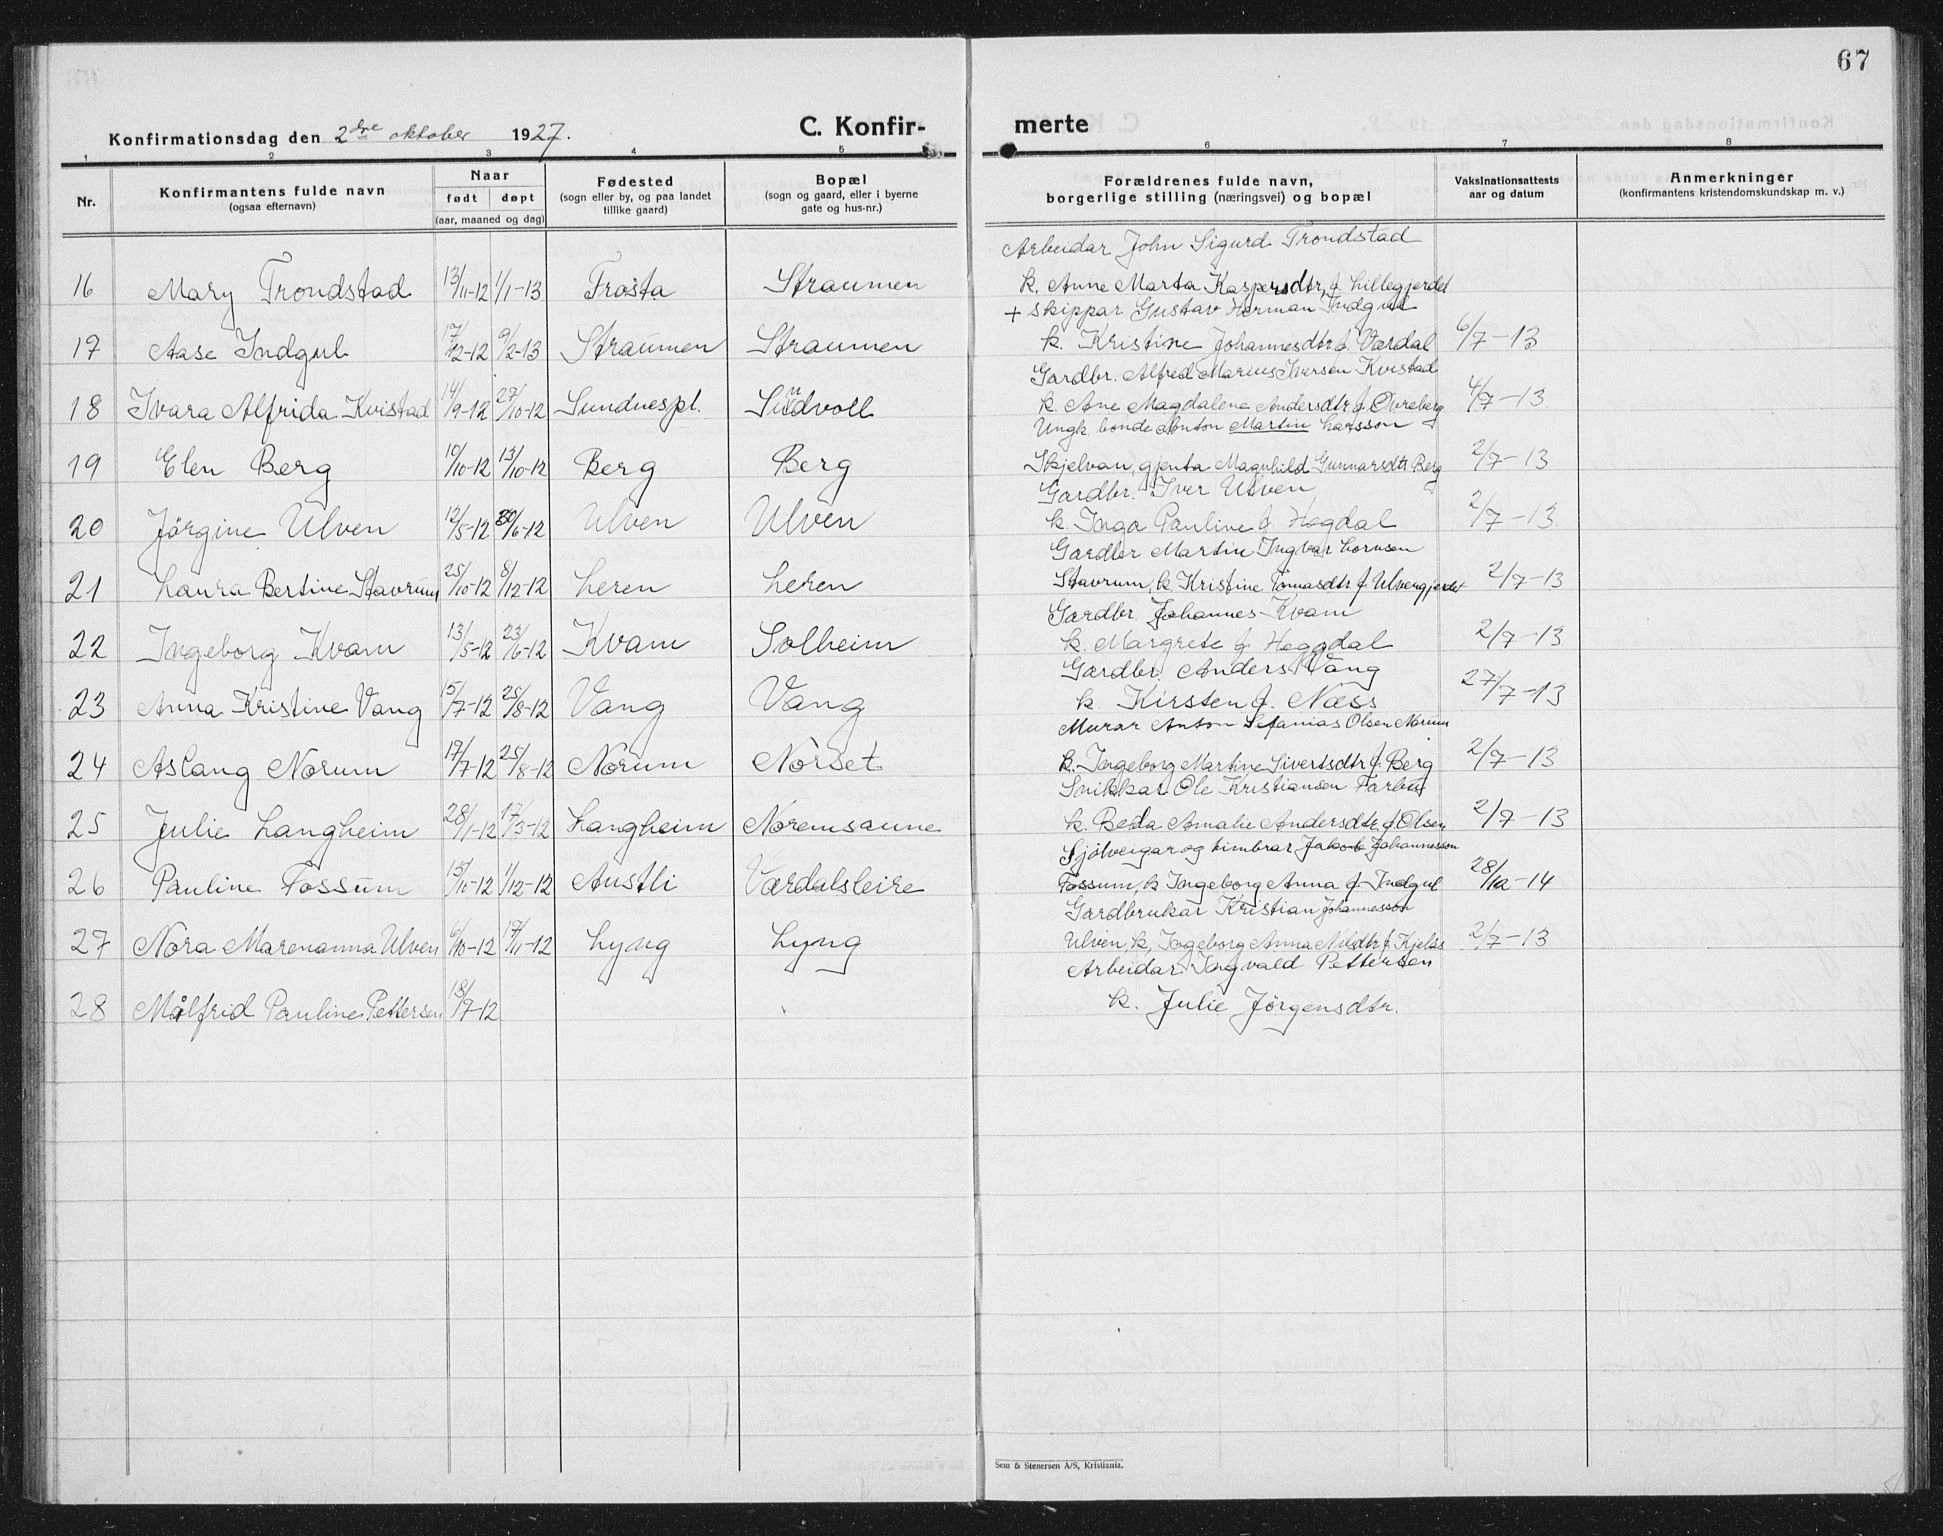 67
Konfirmationsdag den 2dre oktober 1927.
C. Konfir-
merte
1 2 3 4 5 6 7 8
Nr.
Konfirmantens fulde navn
(ogsaa efternavn)
Naar
født døpt
(aar, maaned og dag)
Fødested
(sogn eller by, og paa landet
tillike gaard)
Bopæl
(sogn og gaard, eller i byerne
gate og hus-nr.)
Forældrenes fulde navn,
borgerlige stilling (næringsvei) og bopæl
Vaksinationsattests
aar og datum
Anmerkninger
(konfirmantens kristendomskundskap m. v.)
Arbeidar John Sigurd Trondstad
16 Mary Trondstad 13/11-12 1/1-13 Frosta Straumen k. Anne Marta Kaspersdtr, f. Lillegjerdet
+ Skippar Gustav Herman Indgul
17 Aase Indgul 17/12-12 9/2-13 Straumen Straumen k. Kristine Johannesdtr f. Værdal 6/7-13
Gardbr. Alfred Marius Iversen Kvistad
18 Ivara Alfrida Kvistad 14/9-12 27/10-12 Sundnespl. Sundvoll k. Ane Magdalene Andersdtr f. Øvreberg 4/7-13
Ungk. bonde Anton Martin Larsson
19 Elen Berg 10/10-12 13/10-12 Berg Berg Skjelvan, gjenta Magnhild Gunnarsdtr Berg 2/7-13
Gardbr. Iver Ulven
20 Jørgine Ulven 12/5-12 30/6-12 Ulven Ulven k. Inga Pauline f. Hegdal 2/7-13
Gardbr Martin Ingvar Lornsen
21 Laura Bertine Stavrum 25/10-12 8/12-12 Leren Leren Stavrum, k. Kristine Tomasdtr f. Ulvengjerdet 2/7-13
Gardbr. Johannes Kvam
22 Ingeborg Kvam 13/5-12 23/6-12 Kvam Solheim k. Margrete f. Heggdal 2/7-13
Gardbr. Anders Vang
23 Anna Kristine Vang 15/7-12 25/8-12 Vang Vang k. Kirsten f. Næss 27/7-13
Murar Anton Sefanias Olsen Norum
24 Aslaug Norum 17/7-12 25/8-12 Norum Norset k. Ingeborg Martine Sivertsdtr f. Berg 2/7-13
Snikkar Ole Kristiansen Farbu
25 Julie Langheim 28/1-12 17/3-12 Langheim Noremsaune k. Beda Amalie Andersdtr f. Olsen 2/7-13
Sjølveigar og timbrar Jakob Johannesson
26 Pauline Fossum 15/10-12 1/12-12 Austli Værdalsleire Fossum, k. Ingeborg Anna f. Indgul 28/10-14
Gardbrukar Kristian Johannesson
27 Nora Marenanna Ulven 6/10-12 17/11-12 Lyng Lyng Ulven, k. Ingeborg Anna Nilsdtr f. 2/7-13
Arbeidar Ingvald Pettersen
28 Målfrid Pauline Pettersen 18/7-12 k. Julie Jörgensdtr.
Sem & Stenersen A/S, Kristiania.